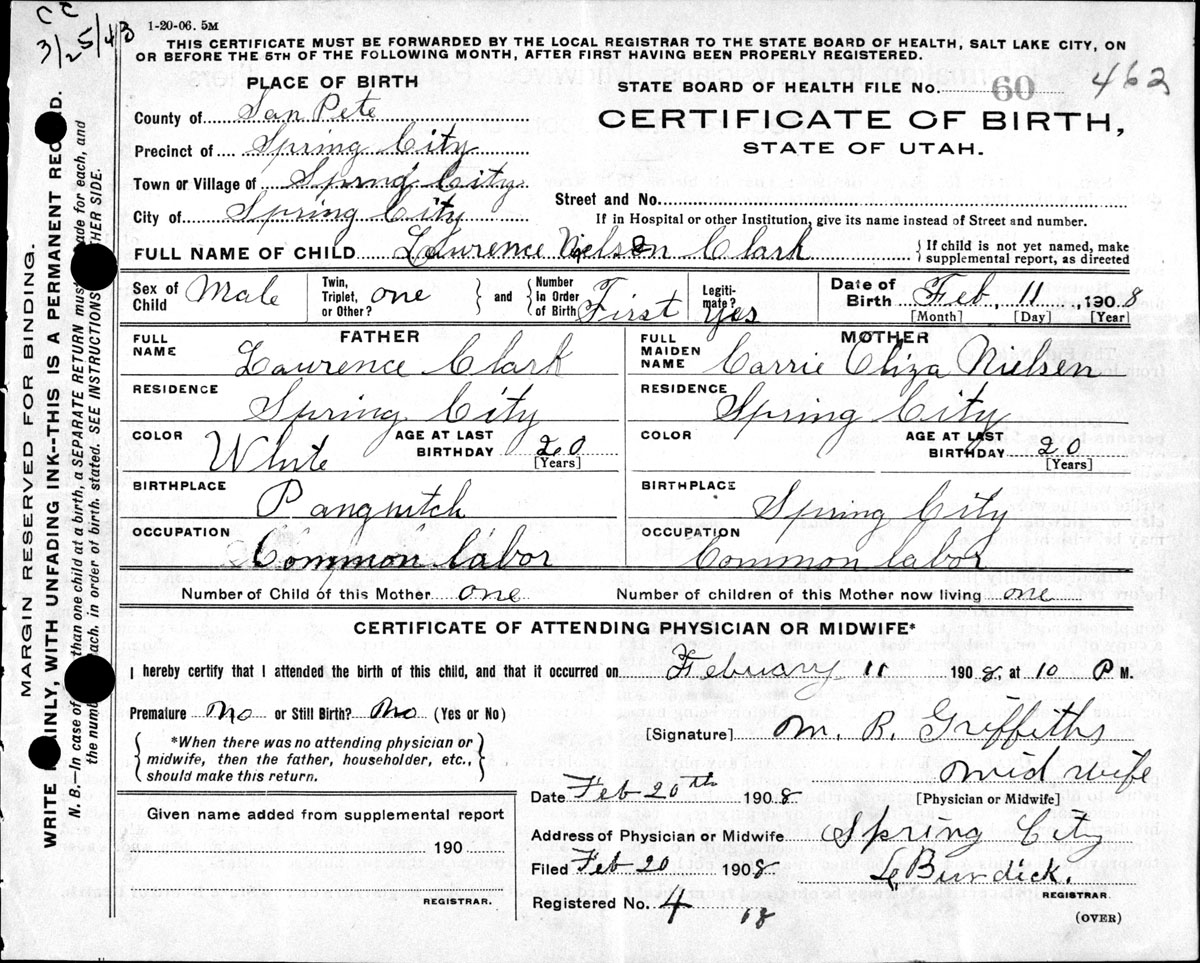 C C
3/25/43
1-20-06. 5M
THIS CERTIFICATE MUST BE FORWARDED BY THE LOCAL REGISTRAR TO THE STATE BOARD OF HEALTH, SALT LAKE CITY, ON
OR BEFORE THE 5TH OF THE FOLLOWING MONTH, AFTER FIRST HAVING BEEN PROPERLY REGISTERED.
PLACE OF BIRTH
STATE BOARD OF HEALTH FILE No. 60 462
County of San Pete
CERTIFICATE OF BIRTH,
STATE OF UTAH.
Precinct of Spring City
Town or Village of Spring City
Street and No.
City of Spring City
If in Hospital or other Institution, give its name instead of Street and number.
FULL NAME OF CHILD Lawrence Nielsen Clark { If child is not yet named, make supplemental report, as directed
Sex of Child Male Twin, Triplet, or Other? one } and { Number In Order of Birth First Legiti-mate? Yes Date of Birth Feb, 11, 1908
[Month] [Day] [Year]
FATHER
FULL NAME Lawrence Clark
RESIDENCE Spring City
COLOR White AGE AT LAST BIRTHDAY 20 [Years]
BIRTHPLACE Panguitch
OCCUPATION Common labor
MOTHER
FULL MAIDEN NAME Carrie Eliza Nielsen
RESIDENCE Spring City
COLOR AGE AT LAST BIRTHDAY 20 [Years]
BIRTHPLACE Spring City
OCCUPATION Common labor
Number of Child of this Mother one Number of children of this Mother now living one
CERTIFICATE OF ATTENDING PHYSICIAN OR MIDWIFE*
I hereby certify that I attended the birth of this child, and that it occurred on February 11 1908, at 10 P M.
Premature No or Still Birth? No (Yes or No)
*When there was no attending physician or
midwife, then the father, householder, etc.,
should make this return.
[Signature] M. R. Griffiths
Midwife
[Physician or Midwife]
Date Feb 20th 1908
Address of Physician or Midwife Spring City
Filed Feb 20 1908 Burdick.
REGISTRAR
Registered No. 4 18
(OVER)
Given name added from supplemental report
190
REGISTRAR.
MARGIN RESERVED FOR BINDING.
WRITE INLY, WITH UNFADING INK--THIS IS A PERMANENT REC D.
N. B.—In case of than one child at a birth, a SEPARATE RETURN must ade for each, and
the numb ach. in order of birth. stated. SEE INSTRUCTIONS THER SIDE.